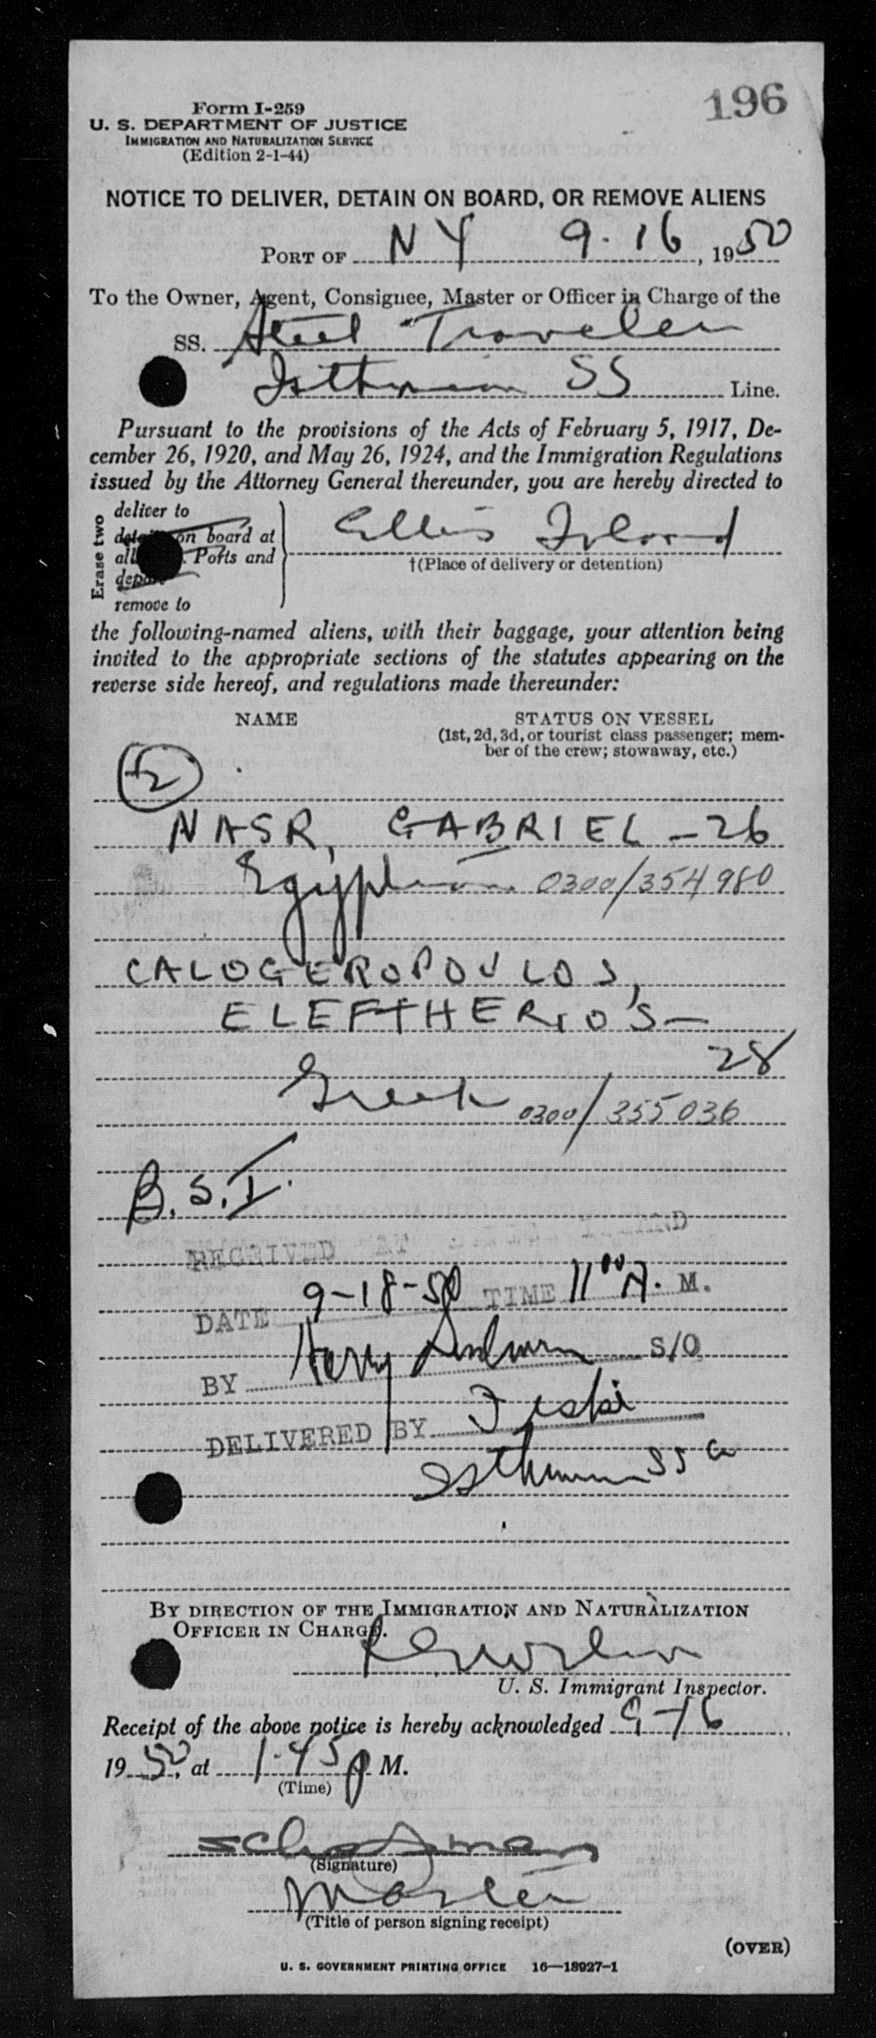 196
Form I-259
U. S. DEPARTMENT OF JUSTICE
IMMIGRATION AND NATURALIZATION SERVICE
(Edition 2-1-44)
NOTICE TO DELIVER, DETAIN ON BOARD, OR REMOVE ALIENS
PORT OF NY 9-16, 1950
To the Owner, Agent, Consignee, Master or Officer in Charge of the
SS. Steel Traveler
Isthmian SS Line.
Pursuant to the provisions of the Acts of February 5, 1917, De-
cember 26, 1920, and May 26, 1924, and the Immigration Regulations
issued by the Attorney General thereunder, you are hereby directed to
Erase two
deliver to
on board at
Ports and
remove to
Ellis Island
†(Place of delivery or detention)
the following-named aliens, with their baggage, your attention being
invited to the appropriate sections of the statutes appearing on the
reverse side hereof, and regulations made thereunder:
NAME STATUS ON VESSEL
(1st, 2d, 3d, or tourist class passenger; mem-
ber of the crew; stowaway, etc.)
2
NASR, GABRIEL - 26
Egyptian 0300/354980
CALOGEROPOULOS,
ELEFTHERIOS -
28
Greek 0300/355036
B.S.I.
RECEIVED AT ISLAND
DATE 9-18-50 TIME 11 00 A. M.
BY Harry S/O
DELIVERED BY
Isthmian SS Co
BY DIRECTION OF THE IMMIGRATION AND NATURALIZATION
OFFICER IN CHARGE.
U. S. Immigrant Inspector.
Receipt of the above notice is hereby acknowledged 9-16
1950, at 1-45 p M.
(Time)
(Signature)
Master
(Title of person signing receipt)
(OVER)
U. S. GOVERNMENT PRINTING OFFICE 16—18927-1